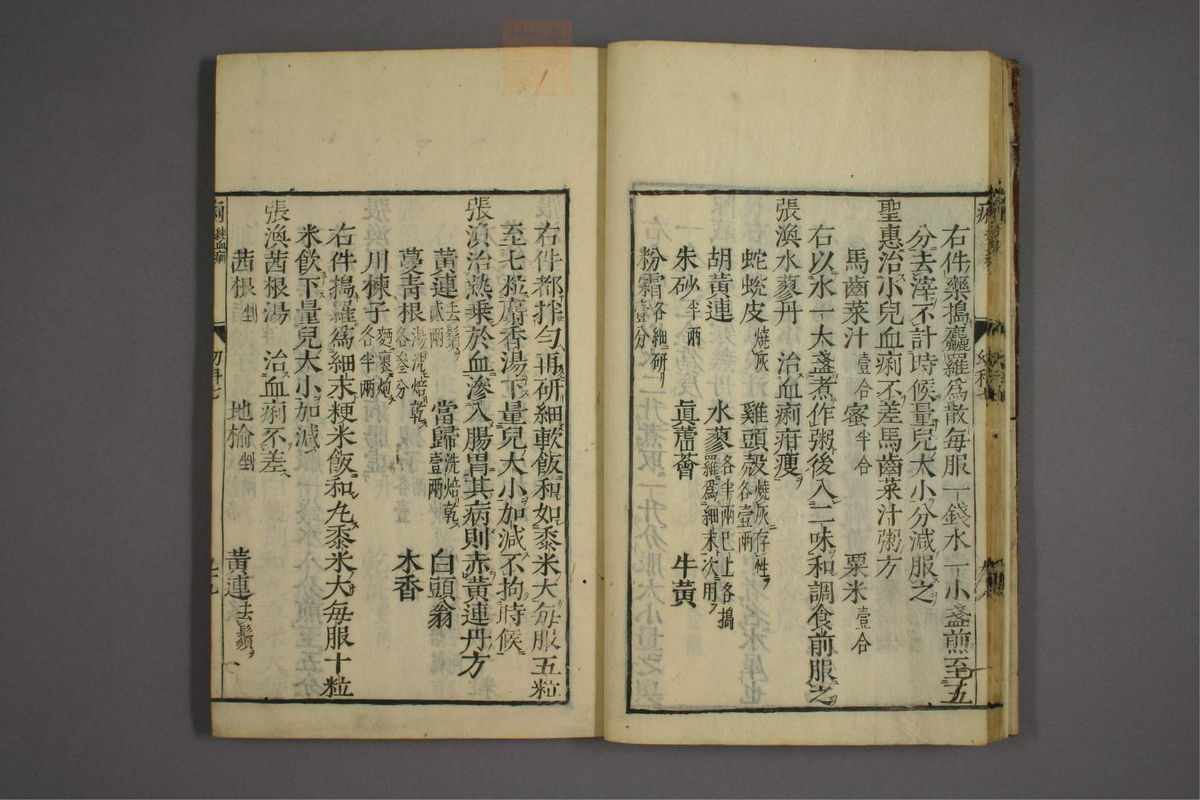 右件藥搗麤羅爲散每服一錢水一小盞煎至五
分去滓不計時候量兒大小分減服之
聖惠治小兒血痢不差馬齒菜汁粥方
馬齒菜汁壹合 蜜半合 粟米壹合
右以水一大盞煮作粥後入二味和調食前服之
張渙水蓼丹 治血痢疳瘦
蛇蛻皮燒灰 雞頭殼燒灰存性各壹兩
胡黃連 水蓼各半兩巴上各搗羅爲細末次用
朱砂半兩 眞蘆薈 牛黃
粉霜各細研壹分
右件都拌勻再研細軟飯和如黍米大每服五粒
至七粒麝香湯下量兒大小加減不拘時候
張渙治熱乘於血滲入腸胃其病則赤黃連丹方
黃連去鬚貳兩 當歸洗焙乾壹兩 白頭翁
蔓青根湯洗焙乾各叁分 木香
川楝子麵裹炮各半兩
右件搗羅爲細末粳米飯和丸黍米大每服十粒
米飲下量兒大小加減
張渙茜根湯 治血痢不差
茜根剉 地榆剉 黃連去鬚